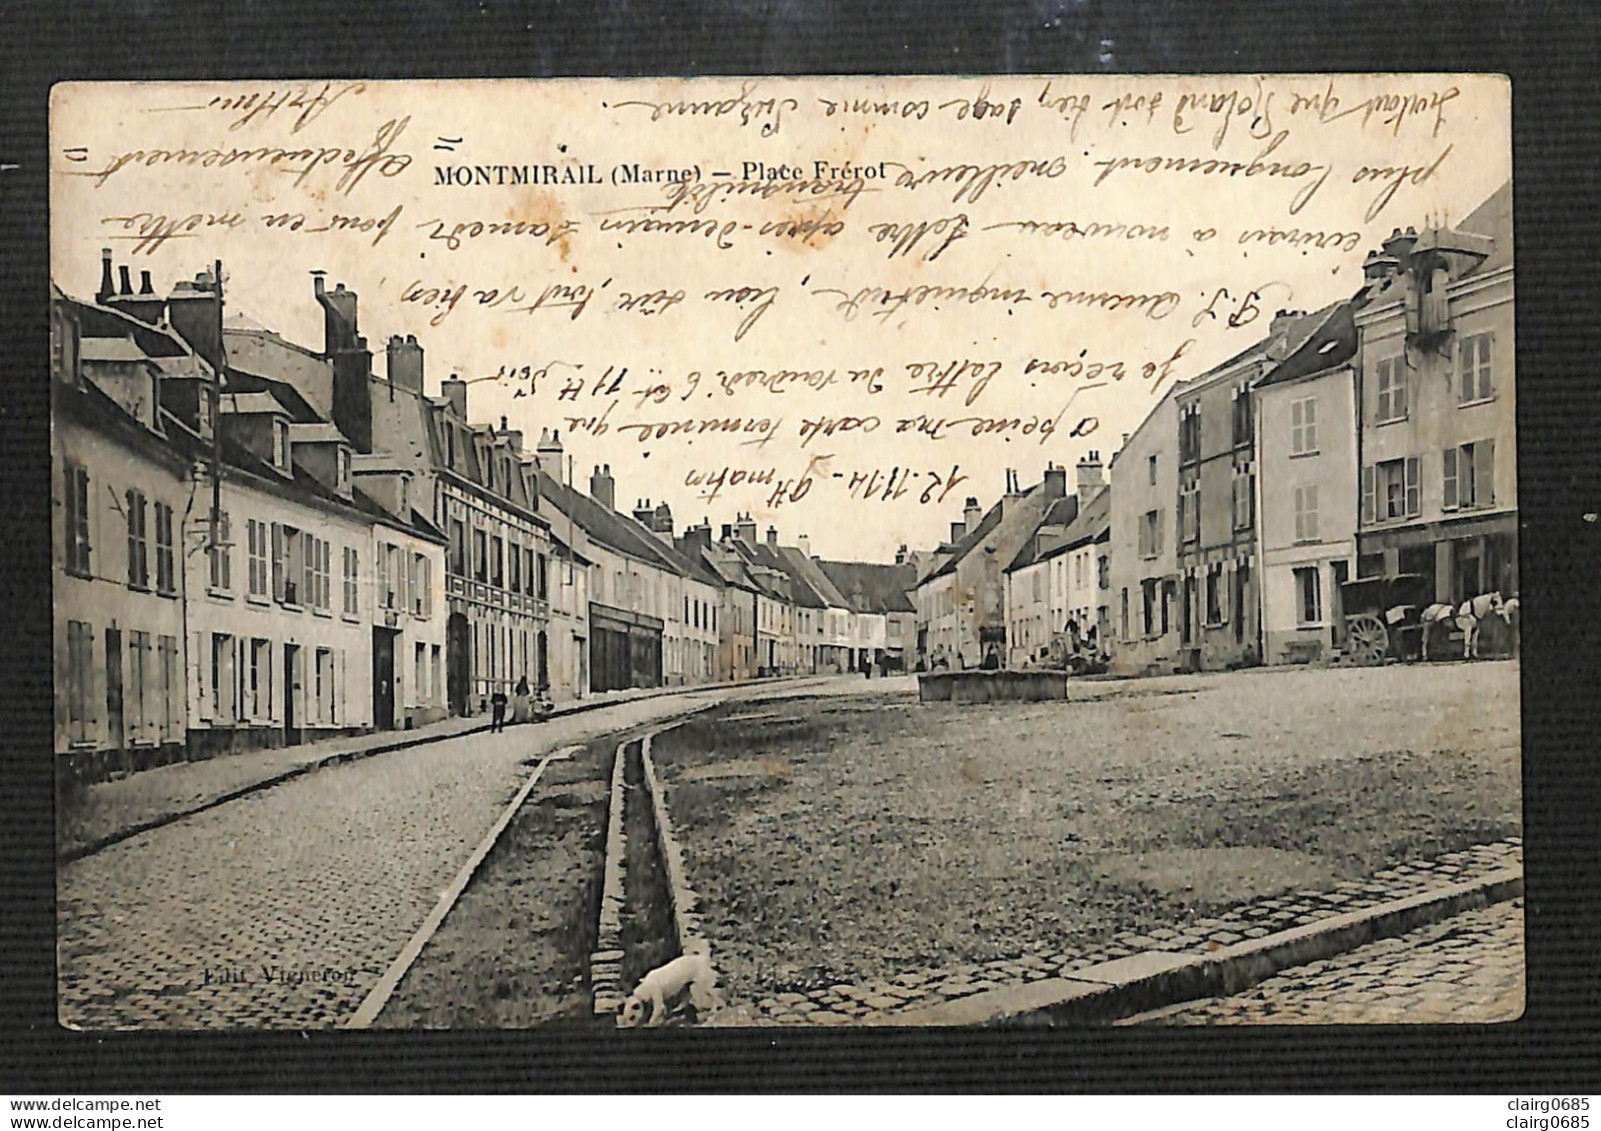 MONTMIRAIL (Marne) — Place Frérot
12.11.14 - 9H matin
à peine ma carte terminée que
je reçois lettre du vendredi 6 et 11H soir
P.S. Aucune inquiétude, bien sûr, tout va bien,
écrirai à nouveau lettre après-demain samedi pour en mettre
plus longuement. meilleure tranquilité
surtout que Roland soit bien sage comme Suzanne.
affectueusement
Arthur
Edit Vigneron
clairg0685
clairg0685
clairg0685
clairg0685